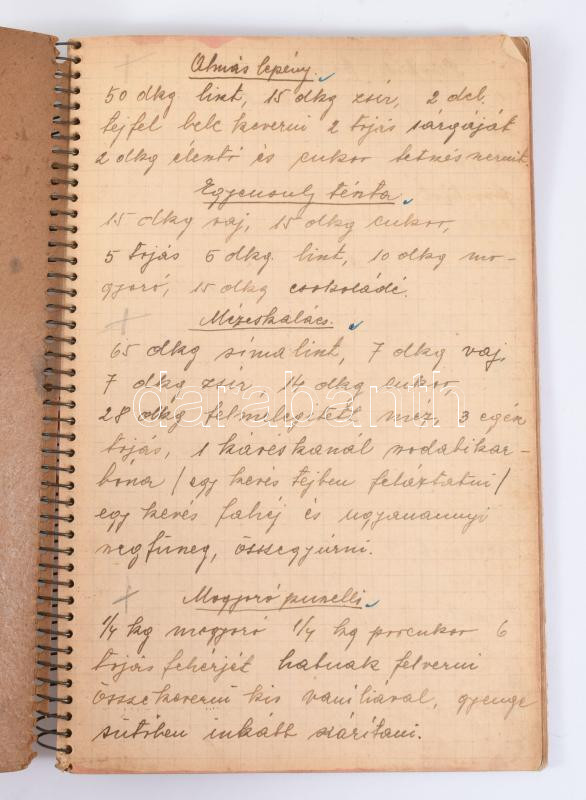 Almás lepény.
50 dkg. liszt, 15 dkg zsír, 2 dcl.
tejfel bele keverni 2 tojás sárgáját
2 dkg élesztő és cukor
Egyensuly
15 dkg vaj, 15 dkg cukor,
5 tojás 6 dkg. liszt, 10 dkg mo-
gyoró, 15 dkg csokoládé.
Mézeskalács.
65 dkg síma liszt, 7 dkg vaj,
7 dkg zsír, 14 dkg cukor,
28 dkg felmelegített méz, 3 egész
tojás, 1 kávéskanál szodabikar-
bóna / egy kevés tejben feláztatni /
egy kevés fahéj és ugyanannyi
szegfüszeg, összegyúrni.
Mogyoró puszelli
1/4 kg mogyoró 1/4 kg porcukor 6
tojás fehérjét habnak felverni
összekeverni kis vaníliával, gyenge
sütőben inkább szárítani.
darabanth